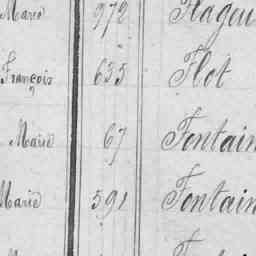 Marie 972 Flageu
François 635 Flot
Marie 67 Fontain
Marie 591 Fontain